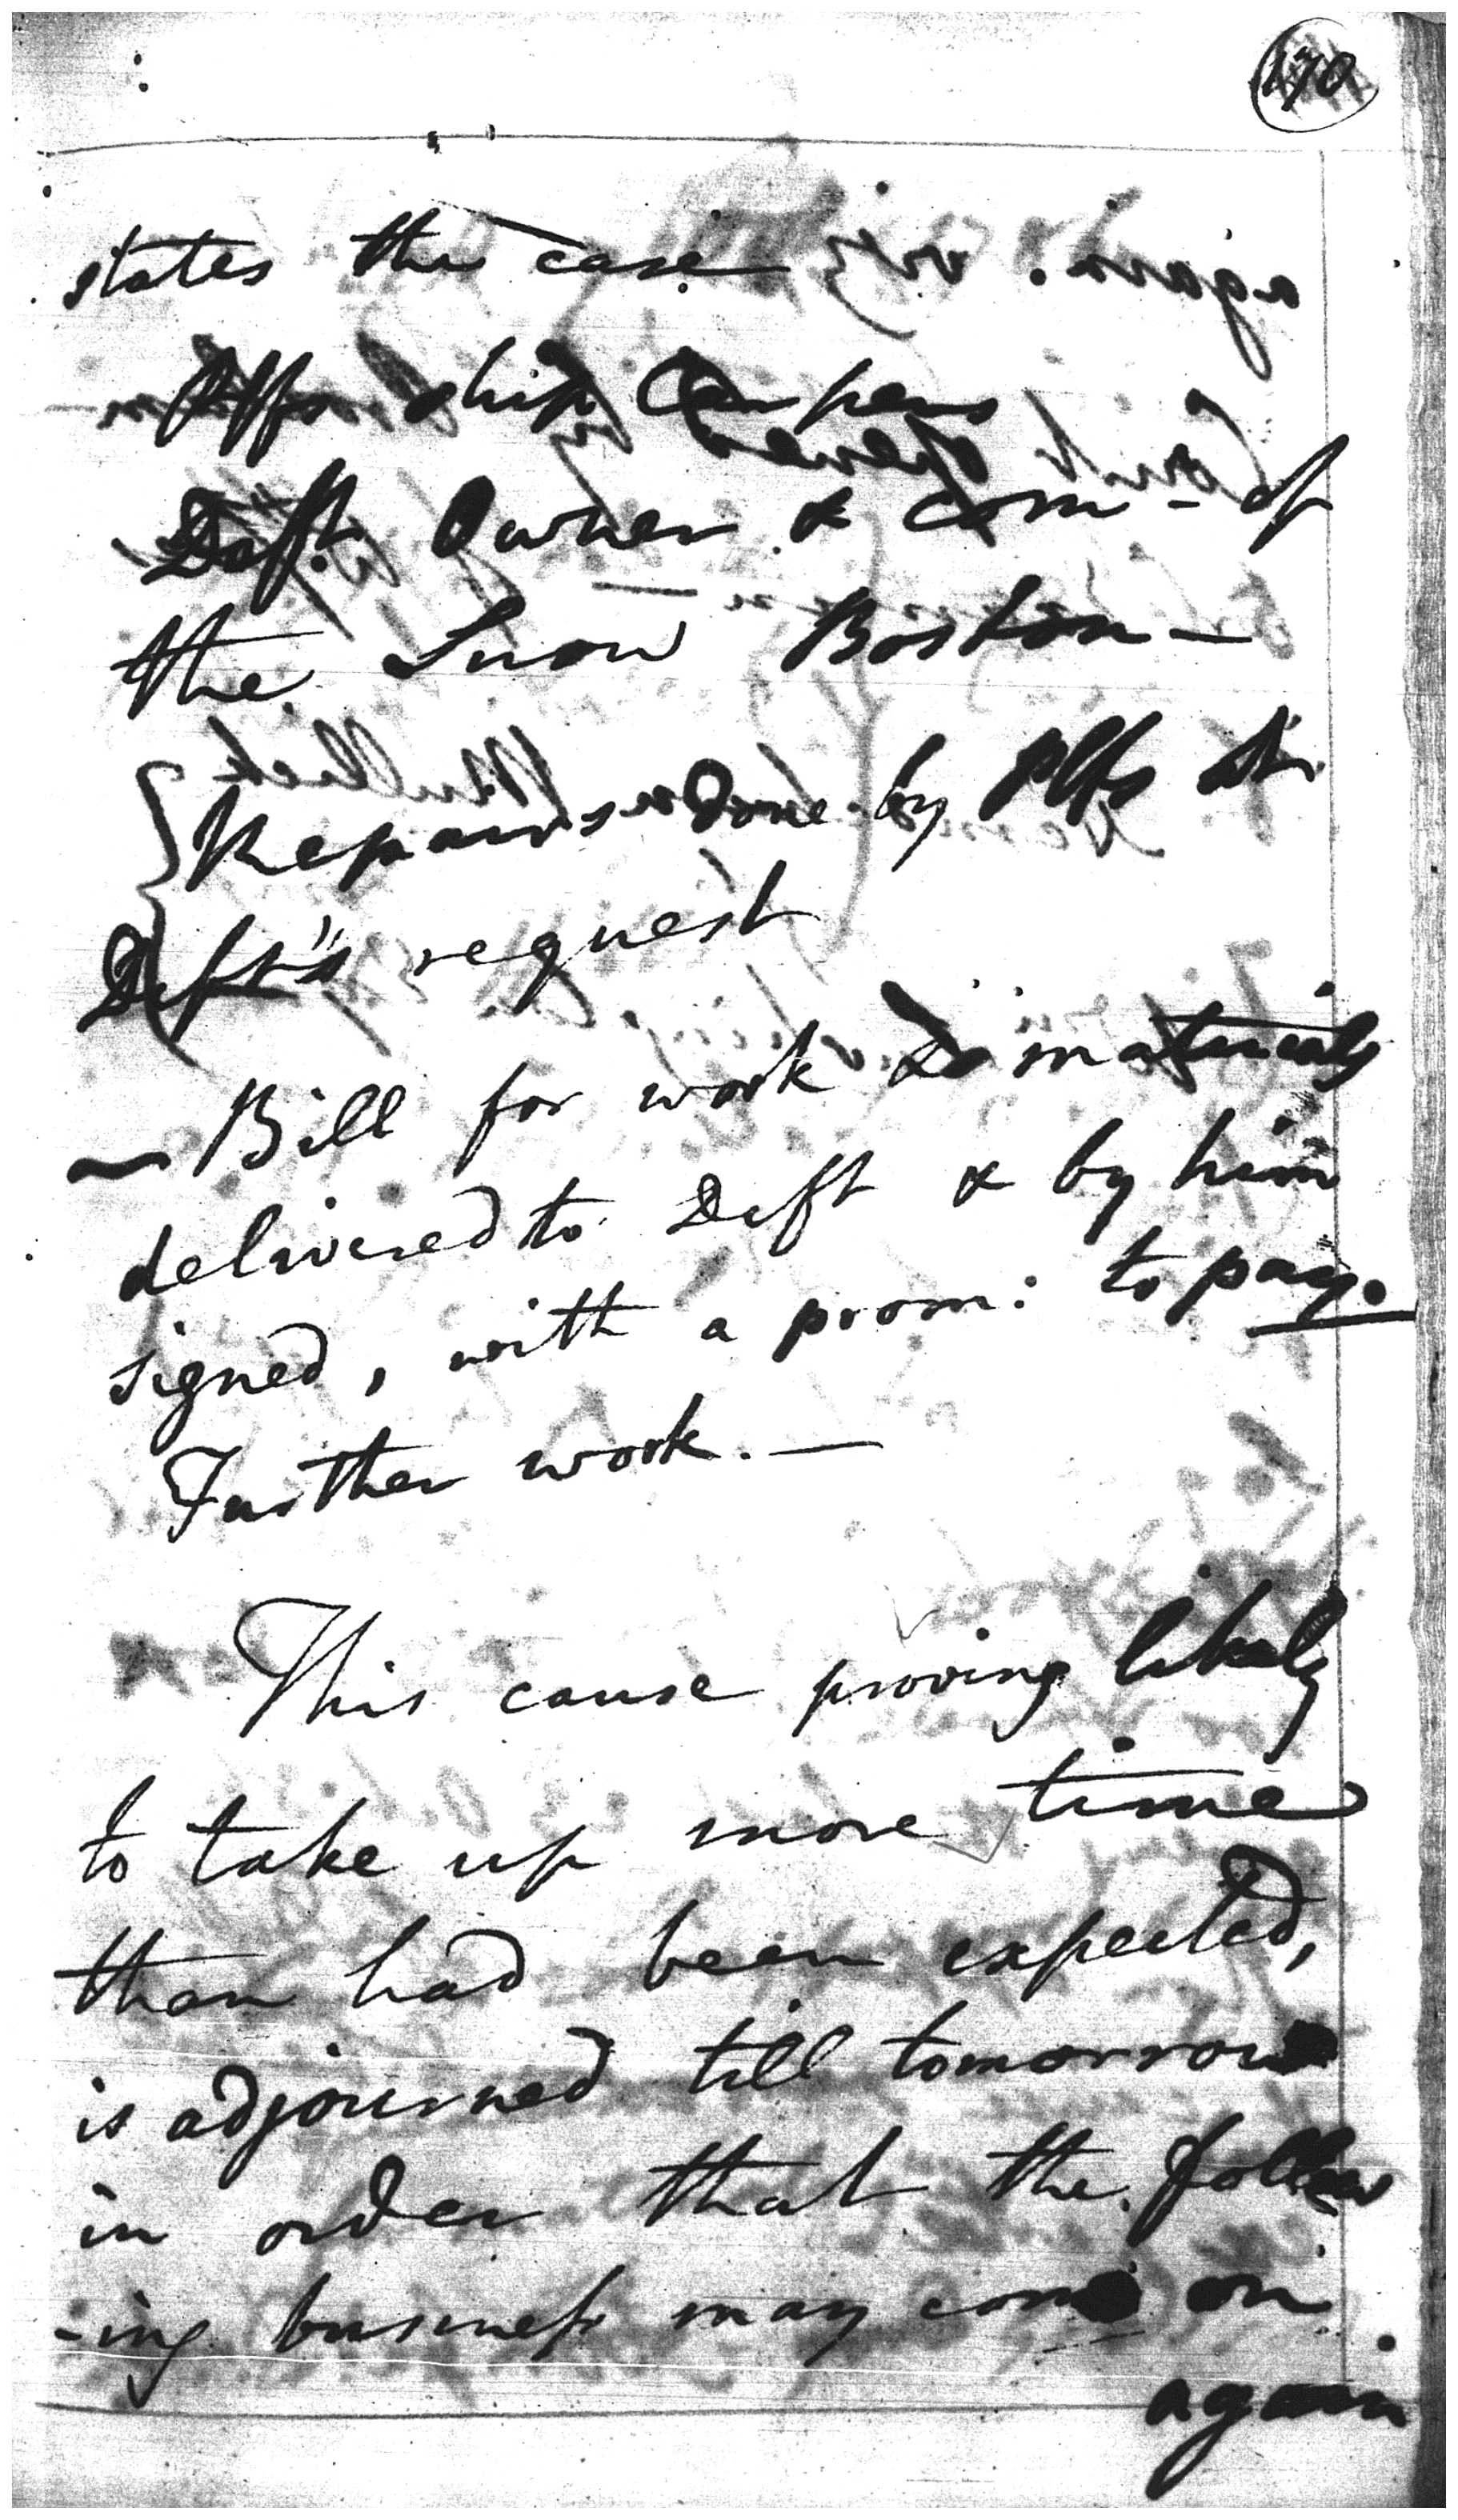 170
states the case
Plffs ship Carpens
Deft. Owner & com - of
the Snow Boston -
Repairs done by Plffs at
Deft's request
- Bill for work & materials
delivered to Deft & by him
signed, with a prom: to pay.
Further work. -
This cause proving likely
to take up more time
than had been expected,
is adjourned till tomorrow
in order that the follow
-ing business may come on
again